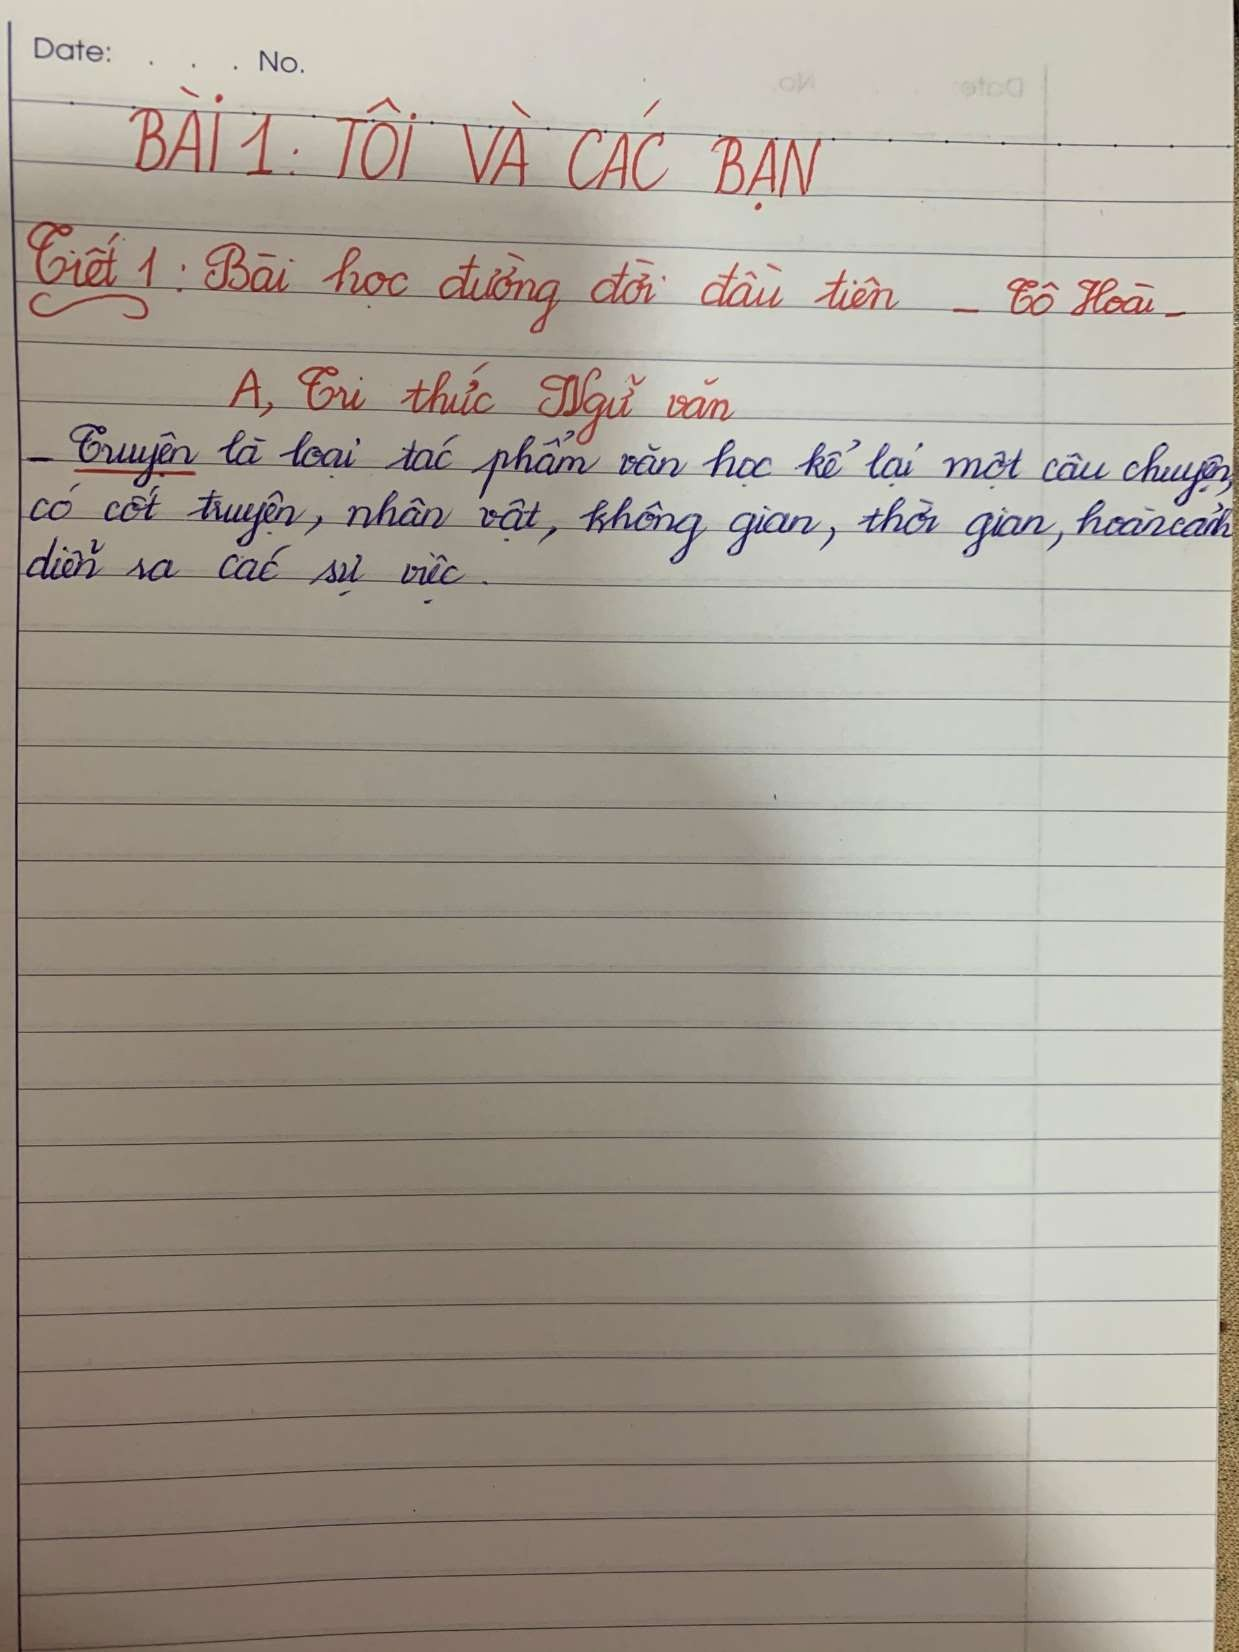 Date: . . . No.
BÀI 1: TÔI VÀ CÁC BẠN
Tiết 1: Bài học đường đời đầu tiên - Tô Hoài -
A, Tri thức Ngữ văn
- Truyện là loại tác phẩm văn học kể lại một câu chuyện,
có cốt truyện, nhân vật, không gian, thời gian, hoàn cảnh
diễn ra các sự việc.